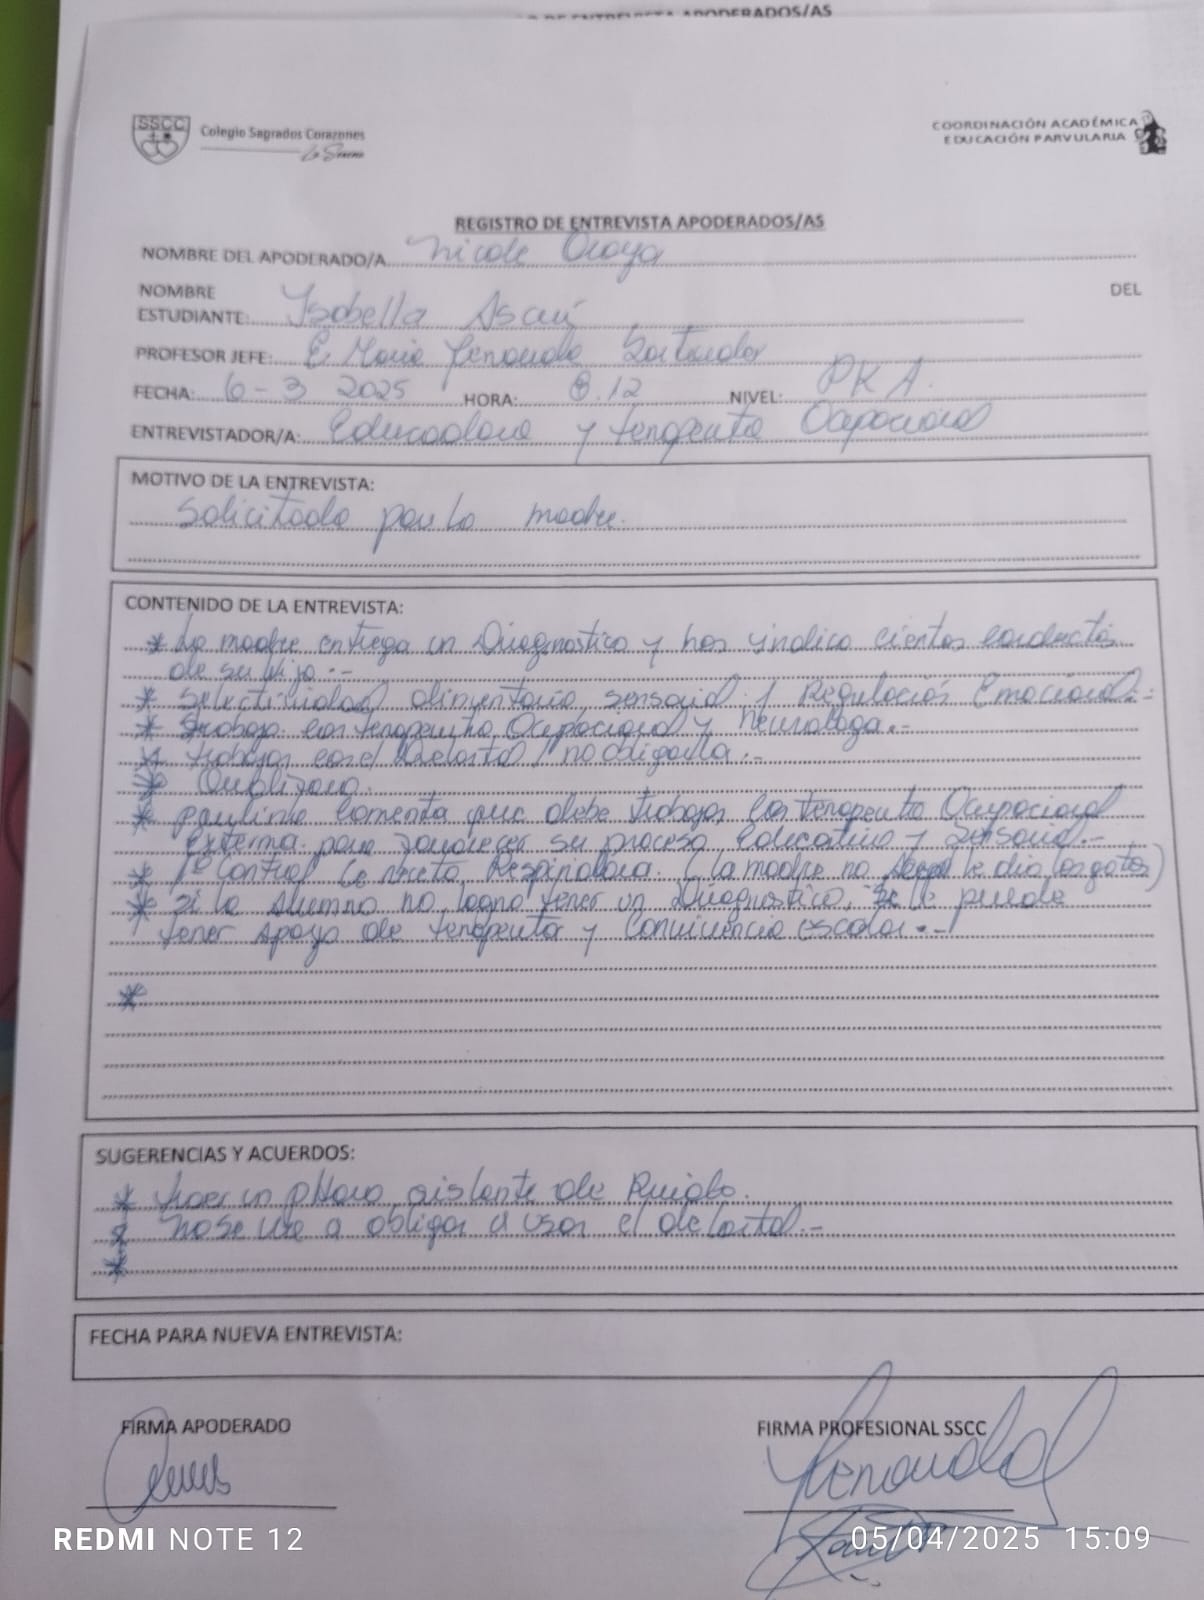 DE ENTREVISTA APODERADOS/AS
SSCC
Colegio Sagrados Corazones
La Serena
COORDINACIÓN ACADÉMICA
EDUCACIÓN PARVULARIA
REGISTRO DE ENTREVISTA APODERADOS/AS
NOMBRE DEL APODERADO/A Nicole Oraya
NOMBRE DEL
ESTUDIANTE: Isabella
PROFESOR JEFE: E. Maria Fernanda Santander
FECHA: 6-3 2025 HORA: 8.12 NIVEL: PKA.
ENTREVISTADOR/A: Educadora y terapeuta Ocupacional
MOTIVO DE LA ENTREVISTA:
Solicitada por la madre.
CONTENIDO DE LA ENTREVISTA:
* La madre entrega un Diagnostico y nos indica ciertas conductas
de su hija.-
* Selectividad alimentaria, sensorial / Regulación Emocional.-
* Trabaja con terapeuta Ocupacional y Neurologa.-
* trabajar con el delantal / no obligarla.-
*
* Pauline comenta que debe trabajar con terapeuta Ocupacional
externa para favorecer su proceso Educativo y Sensorial.-
* 1° Control se receta Respiridona. (la madre no le dio las gotas)
* si la alumna no logra tener un Diagnostico, se le puede
tener apoyo de terapeuta y Convivencia escolar.-
*
SUGERENCIAS Y ACUERDOS:
* traer un aislante de Ruido.
* no se va a obligar a usar el delantal.-
*
FECHA PARA NUEVA ENTREVISTA:
FIRMA APODERADO FIRMA PROFESIONAL SSCC
REDMI NOTE 12 05/04/2025 15:09